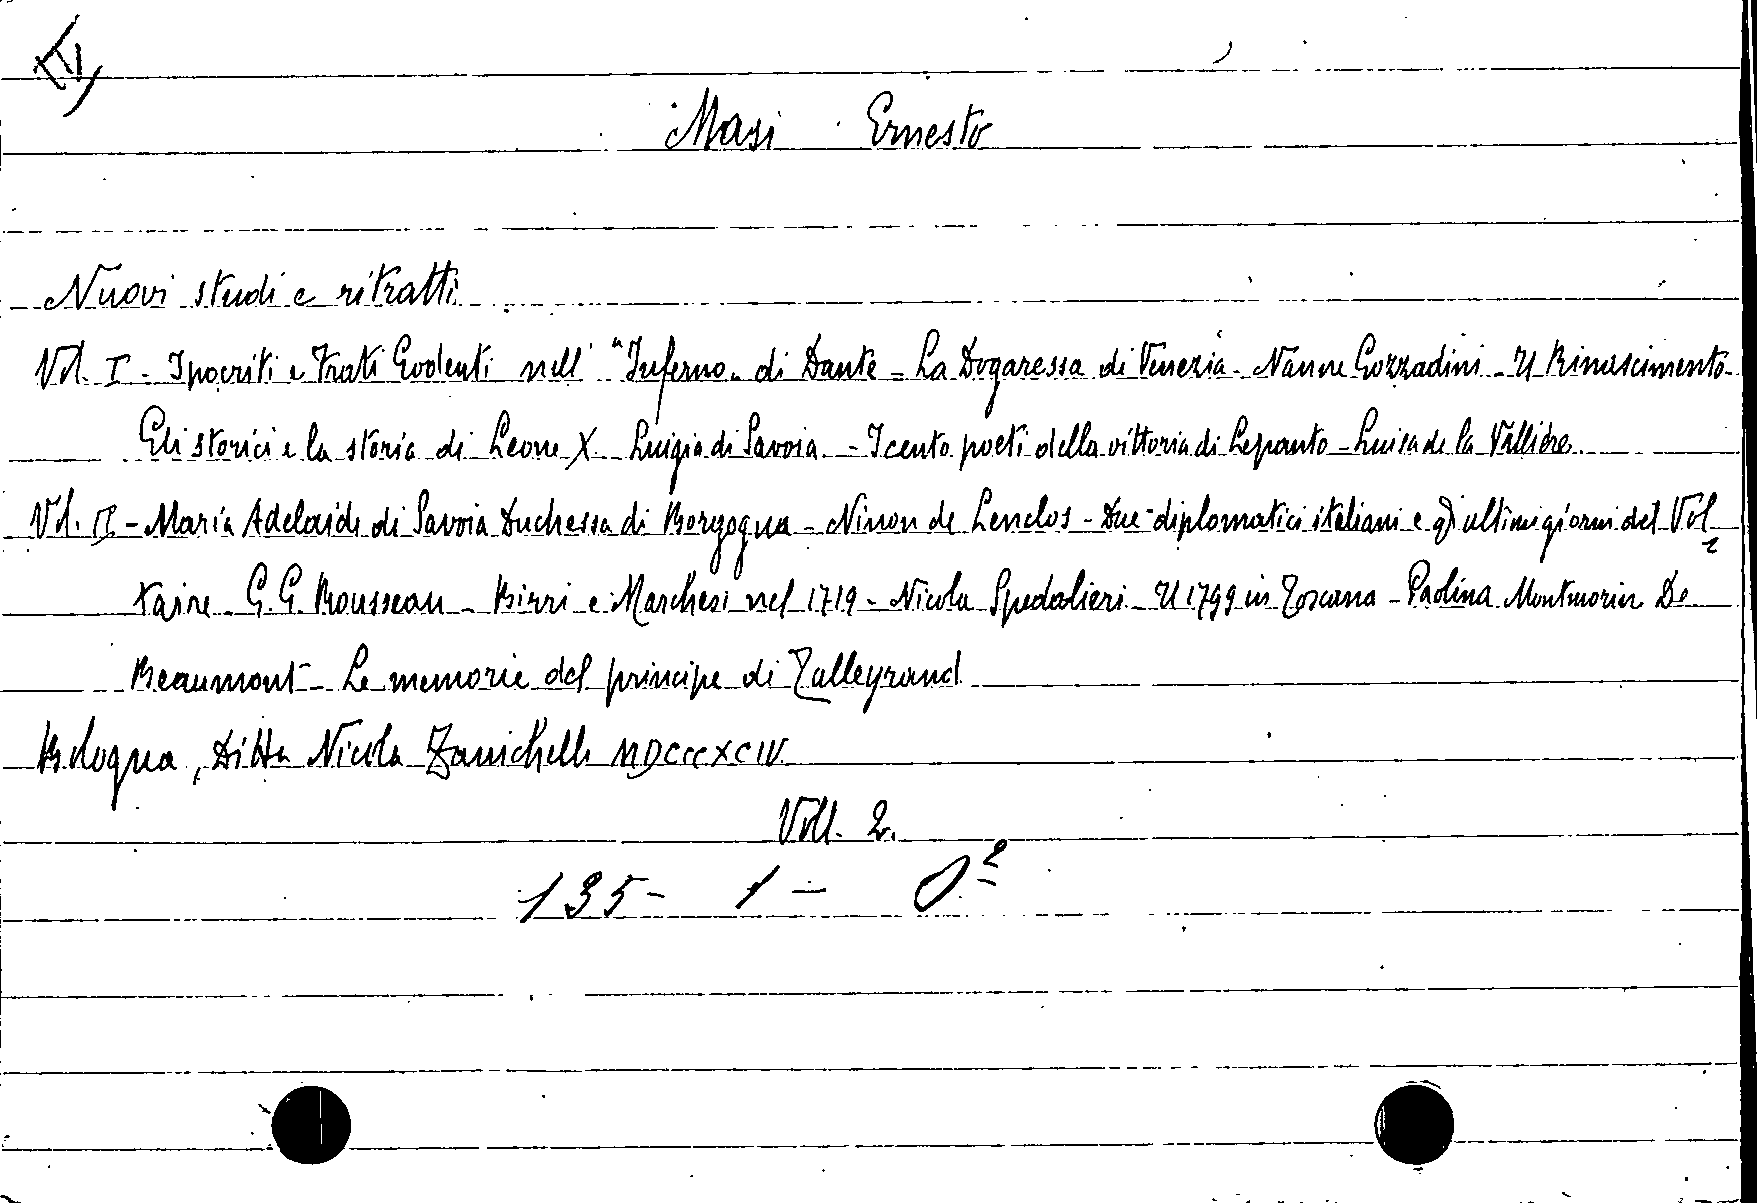 IV
Masi Ernesto
Nuovi studi e ritratti
Vol. I - Ipocriti e Frati Godenti nell' "Inferno" di Dante - La Dogaressa di Venezia - Nanne Gozzadini - Il Rinascimento -
Gli storici e la storia di Leone X - Luigia di Savoia - I cento poeti della vittoria di Lepanto - Luisa de la Vallière
Vol. II - Maria Adelaide di Savoia Duchessa di Borgogna - Ninon de Lenclos - Due diplomatici italiani e gli ultimi giorni del Vol
taire - G. G. Rousseau - Birri e Marchesi nel 1719 - Nicola Spedalieri - Il 1799 in Toscana - Paolina Montmorin De
Beaumont - Le memorie del principe di Talleyrand
Bologna, Ditta Nicola Zanichelli MDCCCXCIV
Voll. 2.
135 - 1 -